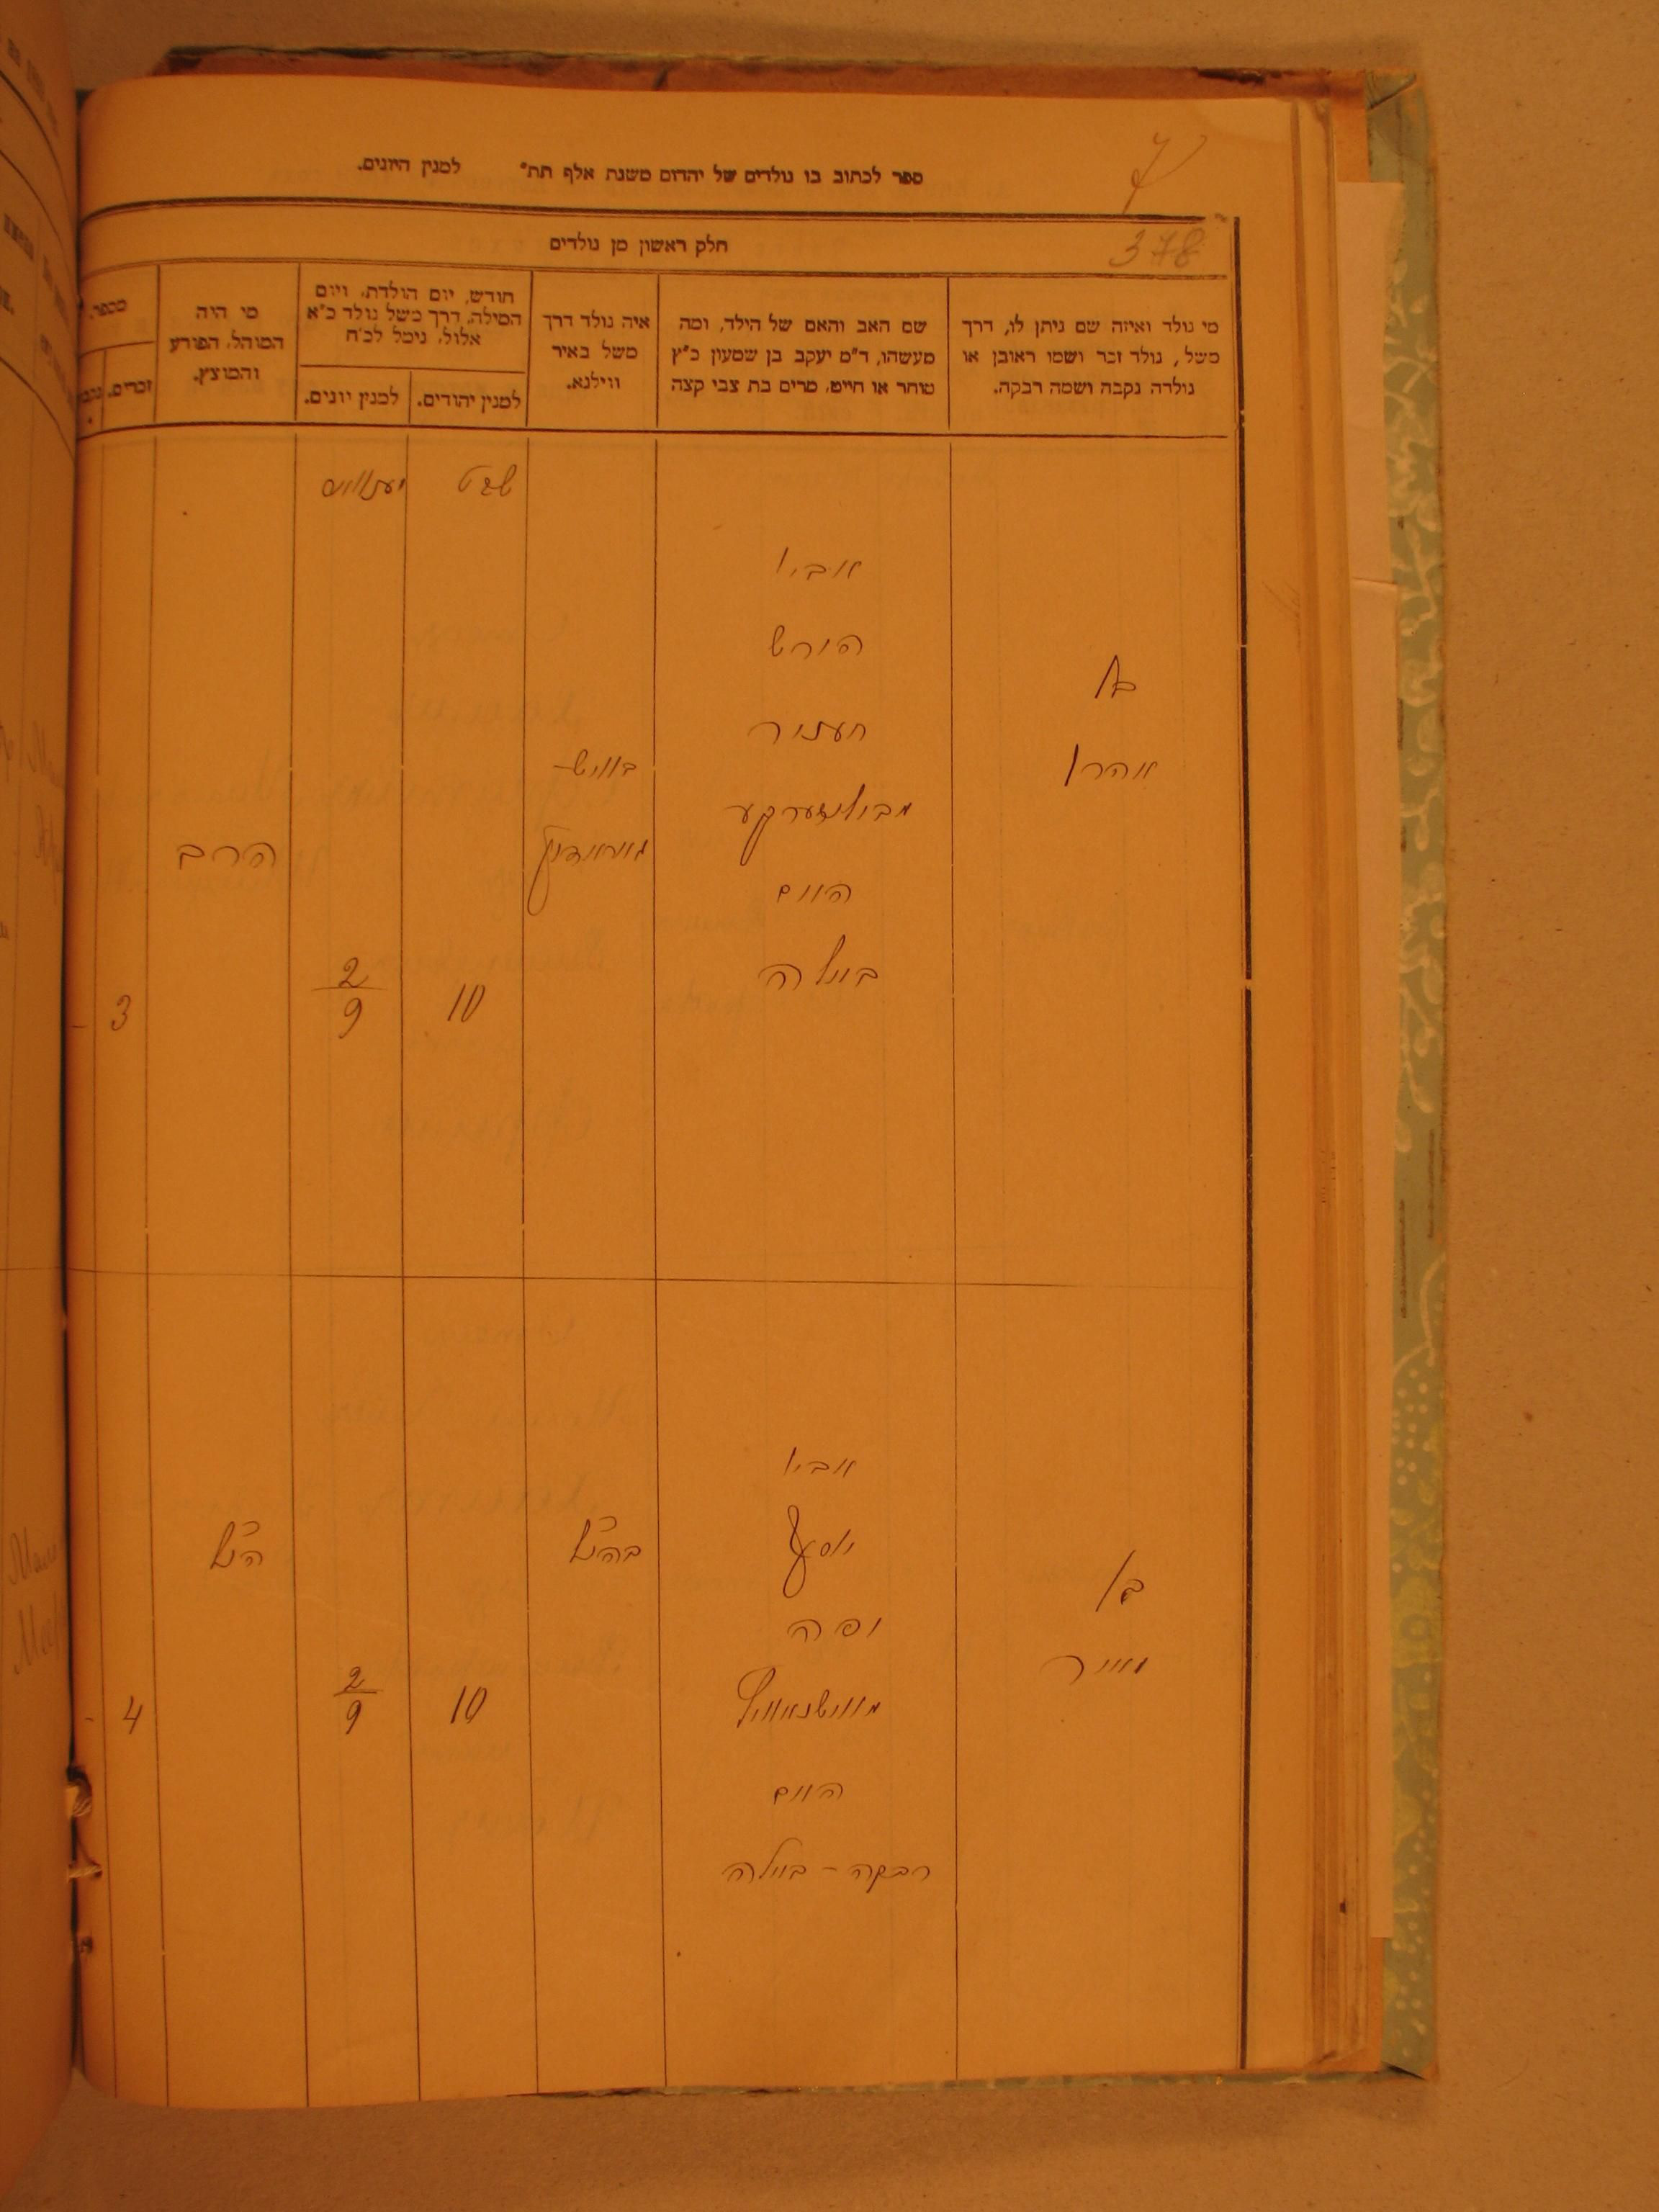 7
ספר לכתוב בו נולדים של יהדום משנת אלף תת״ למנין היונים.
378
חלק ראשון מן נולדים
מי נולד ואיזה שם ניתן לו, דרך
משל, נולד זכר ושמו ראובן או
נולדה נקבה ושמה רבקה.
שם האב והאם של הילד, ומה
מעשהו, ד״מ יעקב בן שמעון כ״ץ
סוחר או חייט, מרים בת צבי קצה
איה נולד דרך
משל באיר
ווילנא.
חודש, יום הולדת, ויום
המילה, דרך משל נולד כ״א
אלול, נימל לכ״ח
למנין יהודים.
למנין יונים.
מי היה
המוהל, הפורע
והמוצץ.
מספר.
זכרים.
שבט
אביו
הירש
בן
אהרן
הרב
האם
ביילה
10
2/9
3
אביו
יוסף
הנ״ל
בהנ״ל
בן
מאיר
10
2/9
4
האם
רבקה - ביילה